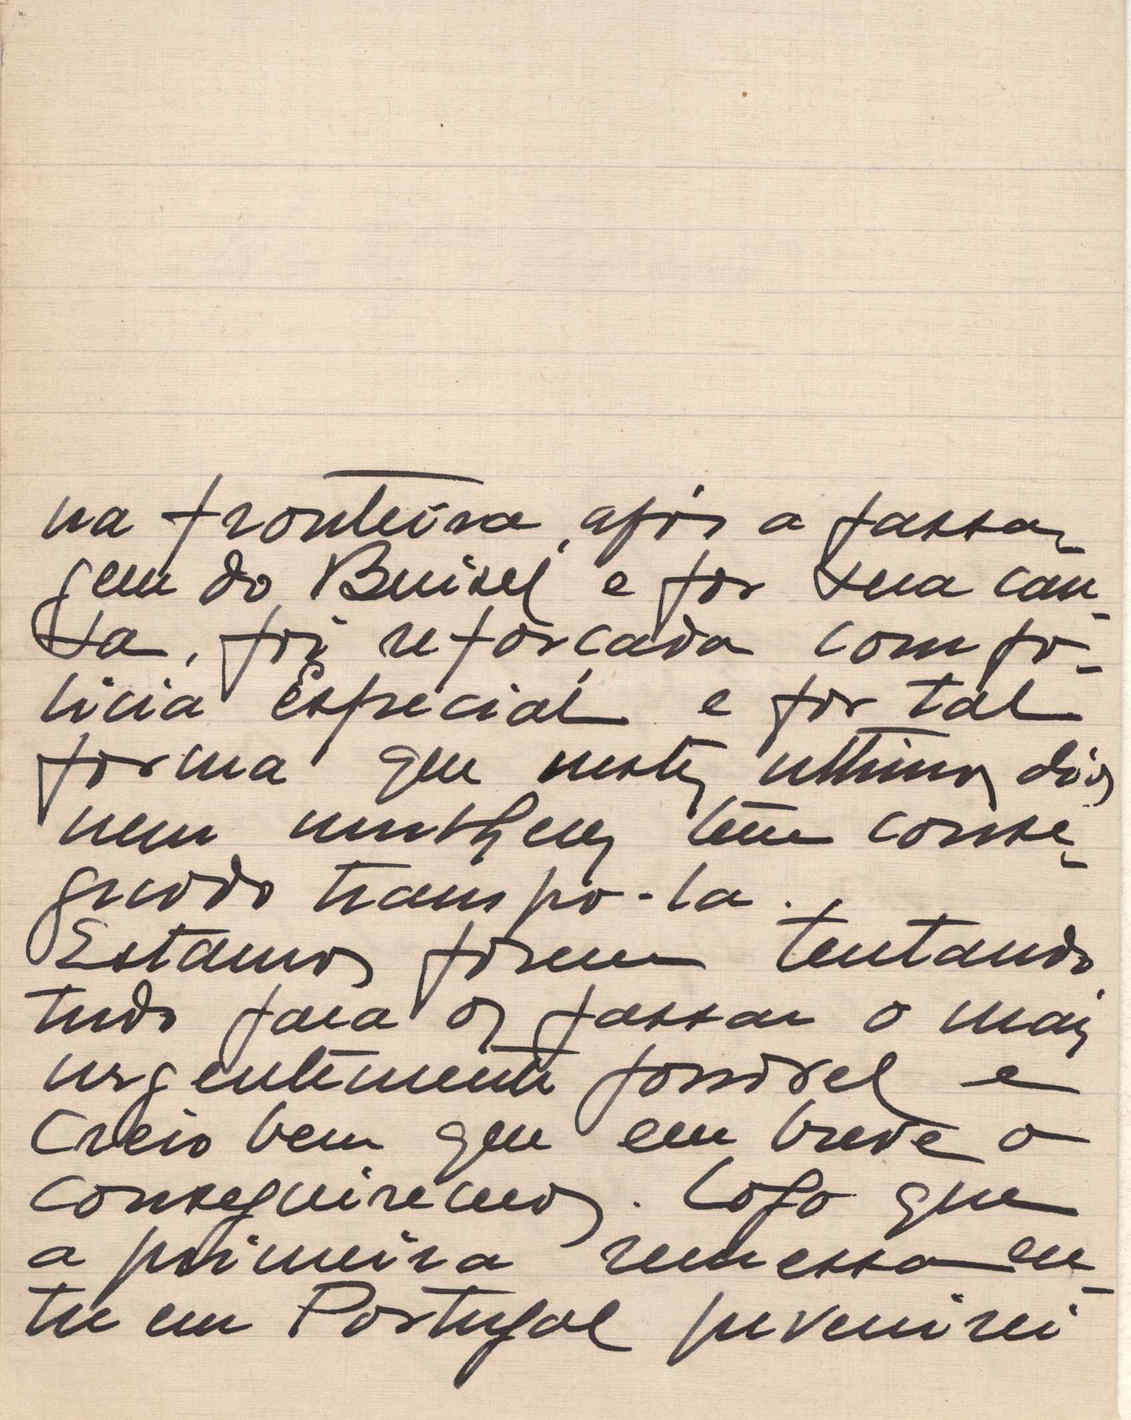 na fronteira, após a passa-
gem do Buisel e por sua cau-
sa, foi reforçada com po-
licia especial e por tal
forma que nestes ultimos dias
nem mulheres têm conse-
guido transpo-la.
Estamos porem tentando
tudo para os passar o mais
urgentemente possivel e
creio bem que em breve o
conseguiremos. Logo que
a primeira remessa en-
tre em Portugal prevenirei